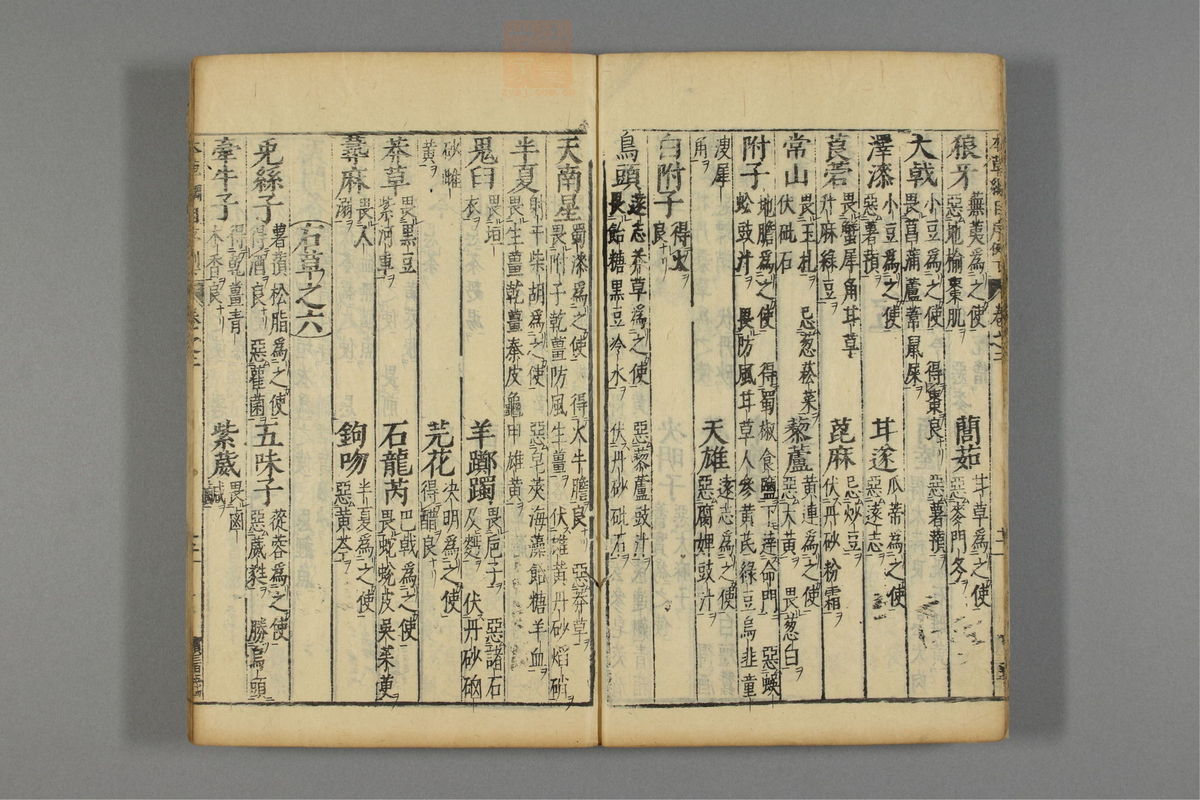 狼牙 蕪荑爲之使 惡地榆棗肌 䕡茹 甘草爲之使 惡麥門冬
大戟 小豆爲之使 得棗良 畏菖蒲蘆葦鼠屎 惡薯蕷
澤漆 小豆爲之使 惡薯蕷 甘遂 瓜蒂爲之使 惡遠志
莨菪 畏蟹犀角甘草升麻綠豆 蓖麻 忌炒豆 伏丹砂粉霜
常山 畏玉札 忌葱菘菜 伏砒石 藜蘆 黃連爲之使 惡大黃 畏葱白
附子 地膽爲之使 得蜀椒食鹽下達命門 惡蜈蚣豉汁 畏防風甘草人參黃芪綠豆烏韭童
溲犀角 天雄 遠志爲之使 惡腐婢豉汁
白附子 得火良
烏頭 遠志莽草爲之使 惡藜蘆豉汁 畏飴糖黑豆冷水 伏丹砂砒石
天南星 蜀漆爲之使 得火牛膽良 惡莽草 畏附子乾薑防風生薑 伏雄黃丹砂焰硝
半夏 射干柴胡爲之使 惡皂莢海藻飴糖羊血 畏生薑乾薑秦皮龜甲雄黃
鬼臼 畏垣衣 羊躑躅 畏巵子 惡諸石及麫 伏丹砂硇
砂雌黃 芫花 決明爲之使 得醋良
莽草 畏黑豆紫河車 石龍芮 巴戟爲之使 畏蛇蛻皮吳茱萸
蕁麻 畏人溺 鉤吻 半夏爲之使 惡黃芩
右草之六
兎絲子 薯蕷松脂爲之使 得酒良 惡雚菌 五味子 蓯蓉爲之使 惡葳蕤 勝烏頭
牽牛子 得乾薑青木香良 紫葳 畏鹵鹹